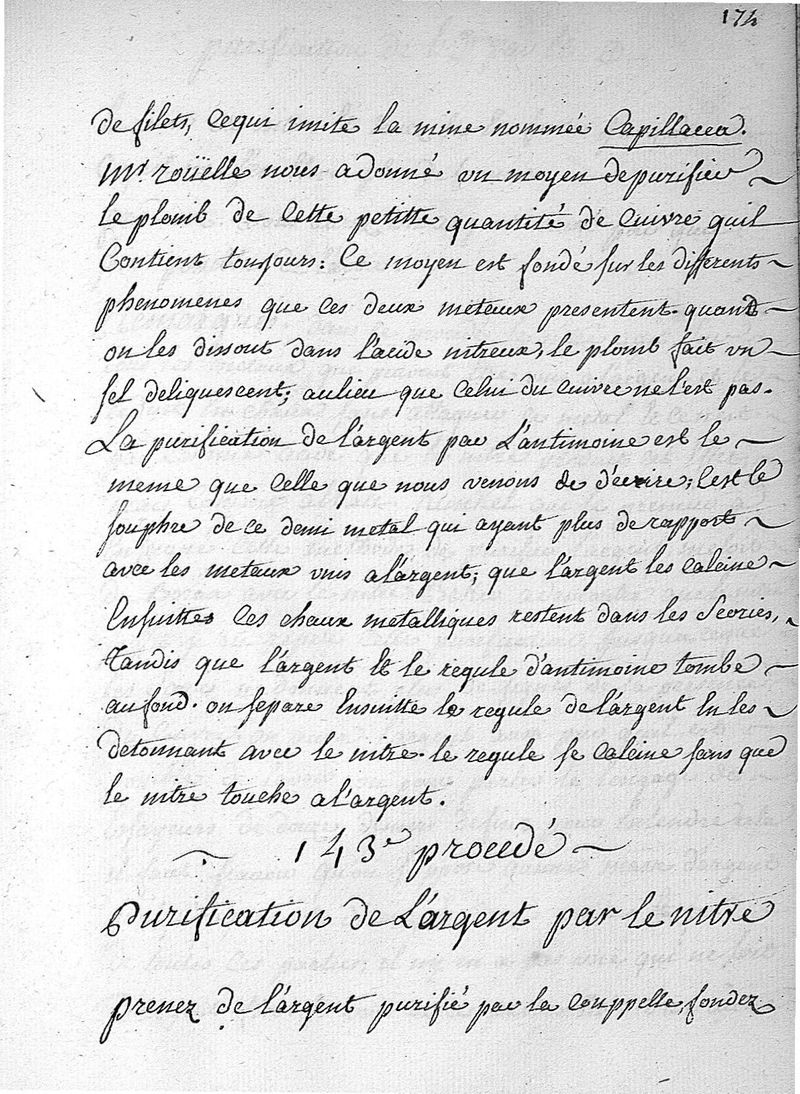 174
de filets, cequi imite la mine nommée Capillacea.
Mr. roüelle nous adonné un moyen depurifier
le plomb de cette petitte quantité de cuivre quil
Contient toujours: Ce moyen est fondé sur les differents
phenomenes que ces deux meteaux presentent quand
on les dissout dans l'acide nitreux, le plomb fait un
sel deliquescent; aulieu que celui du cuivre ne l'est pas.
La purification de l'argent par L'antimoine est le
meme que celle que nous venons de d'ecrire; C'est le
souphre de ce demi metal qui ayant plus de rapport
avec les metaux unis a l'argent; que l'argent les calcine
Ensuittes Ces chaux metalliques restent dans les Scories,
Tandis que l'argent Et le regule d'antimoine tombe
aufond. on separe Ensuitte le regule de l'argent En les
detonnant avec le nitre. le regule se calcine sans que
le nitre touche a l'argent.
143e procedé
Purification de L'argent par le nitre
prenez de l'argent purifié par la couppelle, fondez